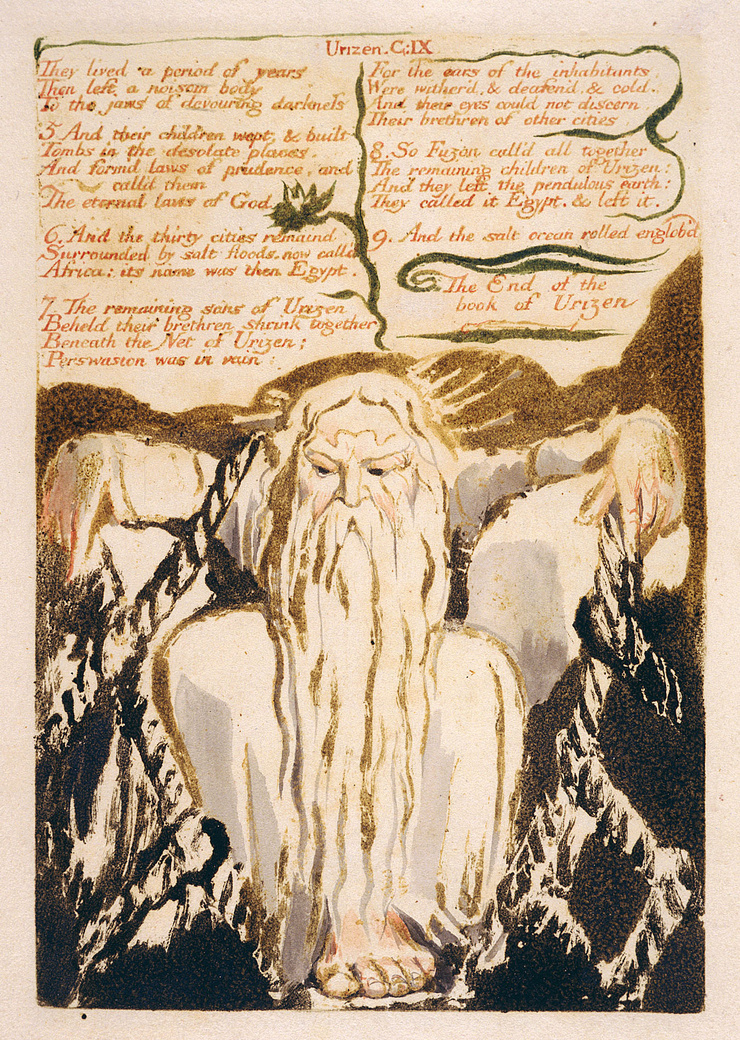 Urizen. C: IX
They lived a period of years
Then left a noisom body
To the jaws of devouring darkness
5. And their children wept, & built
Tombs in the desolate places,
And form'd laws of prudence, and
call'd them
The eternal laws of God
6. And the thirty cities remaind
Surrounded by salt floods, now call'd
Africa: its name was then Egypt.
7. The remaining sons of Urizen
Beheld their brethren shrink together
Beneath the Net of Urizen;
Perswasion was in vain;
For the ears of the inhabitants,
Were wither'd, & deafen'd, & cold.
And their eyes could not discern,
Their brethren of other cities.
8. So Fuzon call'd all together
The remaining children of Urizen:
And they left the pendulous earth:
They called it Egypt, & left it.
9. And the salt ocean rolled englob'd
The End of the
book of Urizen